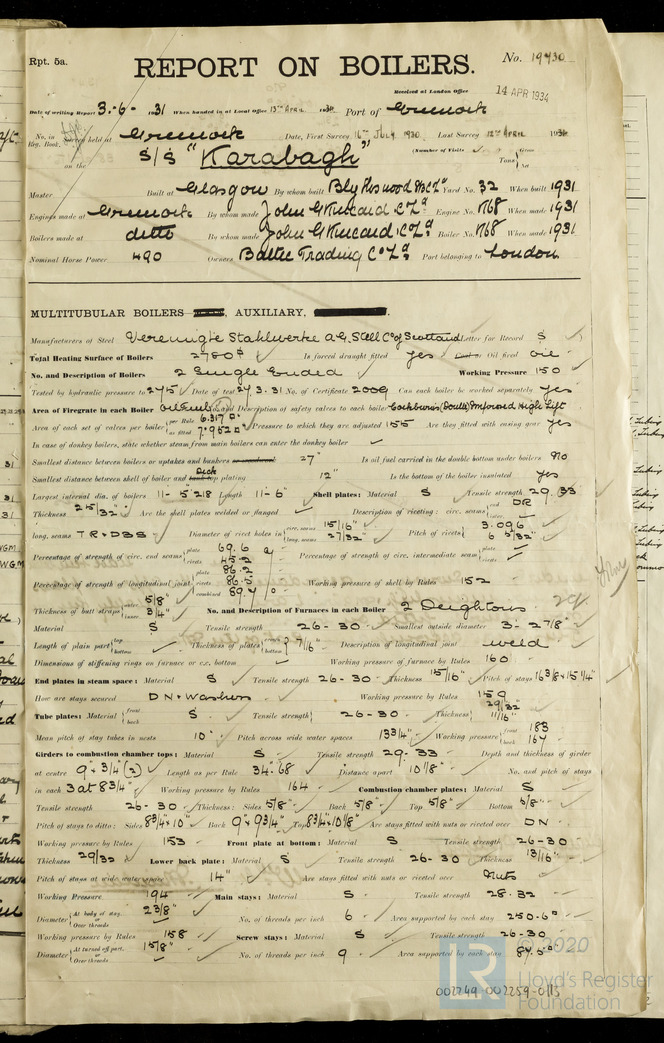 Rpt. 5a.
REPORT ON BOILERS.
No. 19430
Received at London Office 14 APR 1934
Date of writing Report 3-6-1931 When handed in at Local Office 13th April 1934 Port of Greenock
No. in Reg. Book. Survey held at Greenock Date, First Survey 16th July 1930 Last Survey 12th April 1934
on the S/S "Karabagh" (Number of Visits Tons Gross Net
Master Built at Glasgow By whom built Blythswood SB Co Ld Yard No. 32 When built 1931
Engines made at Greenock By whom made John G Kincaid & Co Ld Engine No. M68 When made 1931
Boilers made at ditto By whom made John G Kincaid & Co Ld Boiler No. M68 When made 1931
Nominal Horse Power 490 Owners Baltic Trading Co Ld Port belonging to London
MULTITUBULAR BOILERS , AUXILIARY,
Manufacturers of Steel Vereinigte Stahlwerke A.G. Steel Co of Scotland Letter for Record S
Total Heating Surface of Boilers 2780 Is forced draught fitted yes Oil fired oil
No. and Description of Boilers 2 Single Ended Working Pressure 150
Tested by hydraulic pressure to 275 Date of test 27.3.31 No. of Certificate 2009 Can each boiler be worked separately yes
Area of Firegrate in each Boiler oil fuel No. and Description of safety valves to each boiler Cockburn's Double Improved High Lift
Area of each set of valves per boiler per Rule 6.317 as fitted 7.952 Pressure to which they are adjusted 155 Are they fitted with easing gear yes
In case of donkey boilers, state whether steam from main boilers can enter the donkey boiler
Smallest distance between boilers or uptakes and bunkers 27" Is oil fuel carried in the double bottom under boilers No
Smallest distance between shell of boiler and Deck top plating 12" Is the bottom of the boiler insulated yes
Largest internal dia. of boilers Length 11-6" Shell plates: Material S Tensile strength 29.33
Thickness Are the shell plates welded or flanged Description of riveting: circ. seams end DR inter.
long. seams TR & DBS Diameter of rivet holes in circ. seams 15/16" long. seams 27/32" Pitch of rivets 3.096
Percentage of strength of circ. end seams plate 69.6 rivets 45.2 Percentage of strength of circ. intermediate seam plate rivets
Percentage of strength of longitudinal joint plate 86.2 rivets 86.5 combined 89.4 Working pressure of shell by Rules 152
Thickness of butt straps outer 5/8" inner 3/4" No. and Description of Furnaces in each Boiler 2 Deightons
Material S Tensile strength 26-30 Smallest outside diameter 3-2 7/8"
Length of plain part top bottom Thickness of plates crown bottom 7/16" Description of longitudinal joint weld
Dimensions of stiffening rings on furnace or c.c. bottom Working pressure of furnace by Rules 160
End plates in steam space: Material S Tensile strength 26-30 Thickness 15/16" Pitch of stays 16 3/8 x 15 1/4"
How are stays secured DN & Washers Working pressure by Rules 159
Tube plates: Material front back S Tensile strength 26-30 Thickness 29/32" 11/16"
Mean pitch of stay tubes in nests 10" Pitch across wide water spaces 13 3/4" Working pressure front 183 back 164
Girders to combustion chamber tops: Material S Tensile strength 29.33 Depth and thickness of girder
at centre 9" x 3/4" (2) Length as per Rule 34.68 Distance apart 10 7/8" No. and pitch of stays
in each 3 at 8 3/4" Working pressure by Rules 164 Combustion chamber plates: Material S
Tensile strength 26-30 Thickness: Sides 5/8" Back 5/8" Top 5/8" Bottom 5/8"
Pitch of stays to ditto: Sides 8 3/4 x 10" Back 9" x 9 3/4" Top 8 3/4 x 10 7/8" Are stays fitted with nuts or riveted over DN
Working pressure by Rules 153 Front plate at bottom: Material S Tensile strength 26-30
Thickness 29/32 Lower back plate: Material S Tensile strength 26-30 Thickness 13/16"
Pitch of stays at wide water space 14" Are stays fitted with nuts or riveted over Nuts
Working Pressure 194 Main stays: Material S Tensile strength 28.32
Diameter At body of stay, or Over threads 2 3/8" No. of threads per inch 6 Area supported by each stay 250.6
Working pressure by Rules 158 Screw stays: Material S Tensile strength 26-30
Diameter At turned off part, or Over threads 1 5/8" No. of threads per inch 9 Area supported by each stay 87.5
© 2020
LR Lloyd's Register Foundation
002249-002259-0115